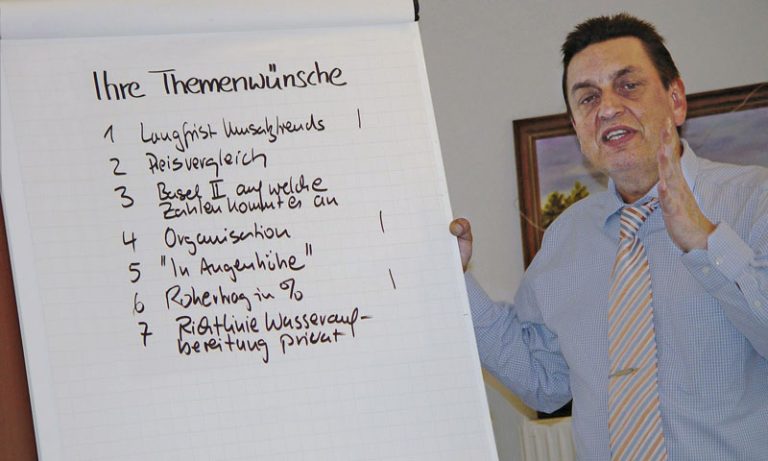 Ihre Themenwünsche
1 Langfrist Umsatztrends |
2 Preisvergleich
3 Basel II auf welche
Zahlen kommt es an
4 Organisation |
5 "In Augenhöhe"
6 Rohertrag in % |
7 Richtlinie Wasserauf-
bereitung privat